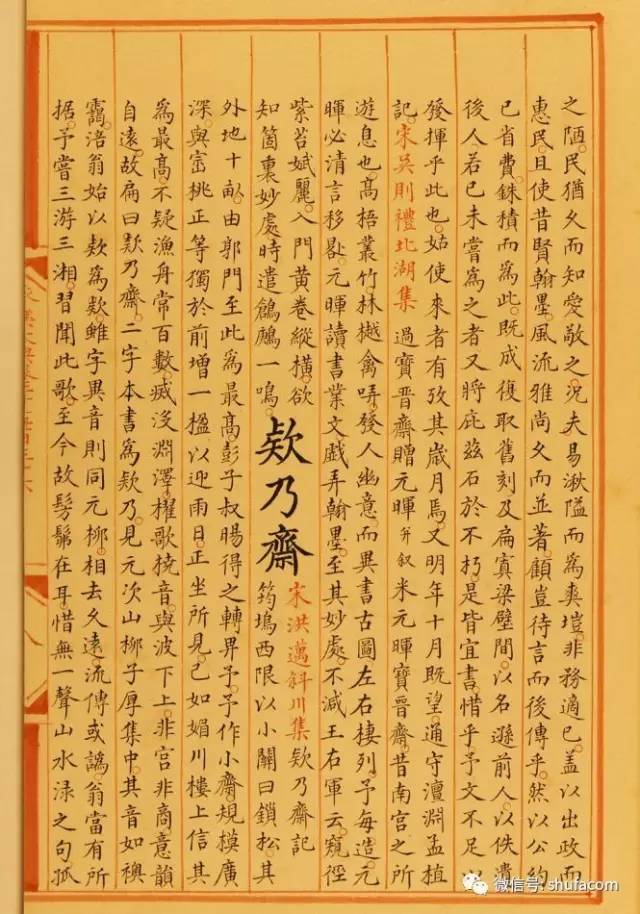 之陋。民猶久而知愛敬之。况夫易湫隘而為爽塏。非務適已。蓋以出政而
惠民。且使昔賢翰墨。風流雅尚。久而並著。顧豈待言而後傳乎。然以公約
已省費。銖積而為此。既成復取舊刻及扁寘梁壁間。以名遜前人。以佚遺
後人。若已未嘗為之者。又將庇茲石於不朽。是皆宜書。惜乎予文不足以
發揮乎此也。姑使來者有攷其歲月焉。又明年十月既望。通守澶淵孟植
記。宋吳則禮北湖集 過寶晉齋贈元暉并叙 米元暉寶晉齋。昔南宮之所
遊息也。高梧叢竹。林樾禽哢。發人幽意。而異書古圖左右棲列。予每造元
暉必清言移晷。元暉讀書業文。戲弄翰墨。至其妙處。不減王右軍云。窺徑
紫苔斌麗。入門黄卷縱橫。欲
知箇裏妙處。時遣鶬鴈一鳴。
欵乃齋
宋洪邁斜川集 欵乃齋記
筠塢西限以小關曰鎖松。其
外地十畝。由郭門至此為最高。彭子叔暘得之轉畀予。予作小齋。規模廣
深。與窊桃正等。獨於前增一楹以迎雨日。正坐所見。已如媚川樓上。信其
為最高不疑。漁舟常百數。臧没淵澤。櫂歌撓音。與波下上。非宮非商。意韻
自遠。故扁曰欵乃齋。二字本書為欸乃。見元次山柳子厚集中。其音如襖
靄。涪翁始以欵為欸。雖字異音則同。元柳相去久遠。流傳或譌。翁當有所
据。予嘗三游三湘。習聞此歌。至今故髣髴在耳。惜無一聲山水渌之句。孤
微信号: shufacom